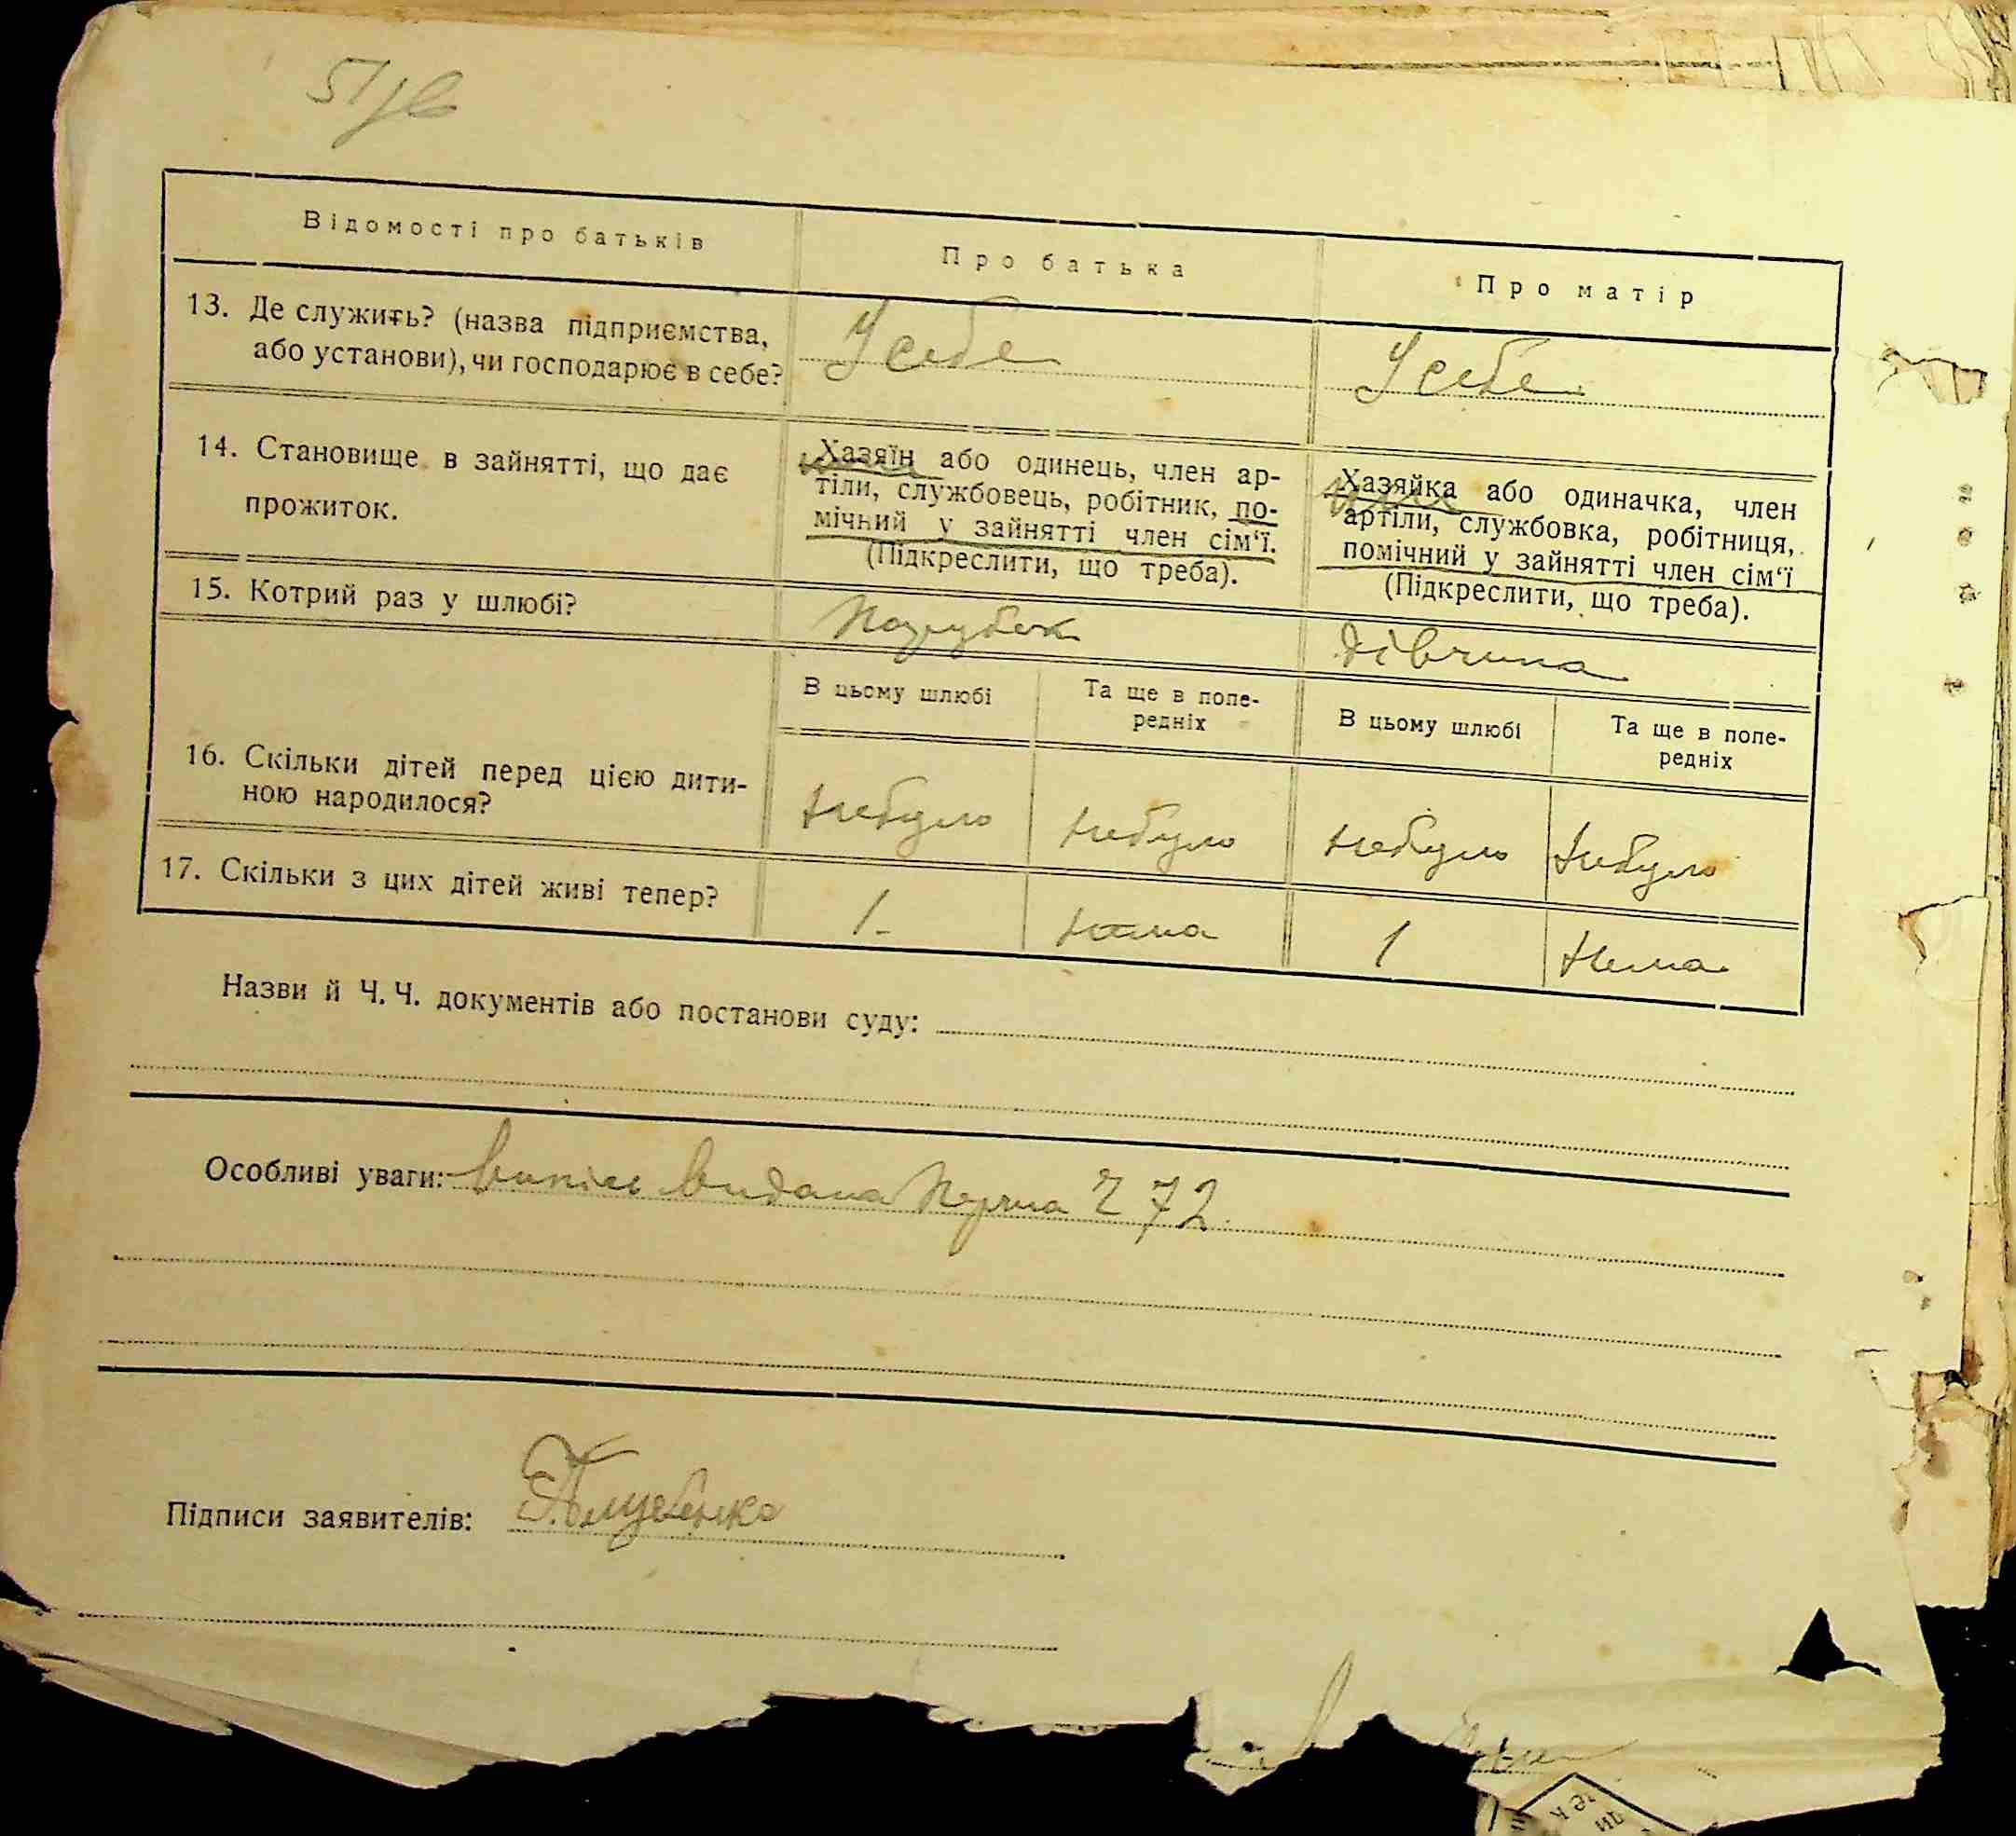 Відомості про батьків
Про батька
Про матір
13. Де служить? (назва підприємства,
або установи), чи господарює в себе?
У себе
У себе
14. Становище в зайнятті, що дає
прожиток.
Хазяїн або одинець, член ар-
тіли, службовець, робітник, по-
мічний у зайнятті член сім‘ї.
(Підкреслити, що треба).
Хазяйка або одиначка, член
артіли, службовка, робітниця,
помічний у зайнятті член сім‘ї
(Підкреслити, що треба).
15. Котрий раз у шлюбі?
Парубок
Дівчина
В цьому шлюбі
Та ще в попе-
редніх
В цьому шлюбі
Та ще в попе-
редніх
16. Скільки дітей перед цією дити-
ною народилося?
Небуло
Небуло
Небуло
Небуло
17. Скільки з цих дітей живі тепер?
1-
Нема
1
Нема
Назви й Ч. Ч. документів або постанови суду:
Особливі уваги: Випісь видана Перша Ч 72
Підписи заявителів: